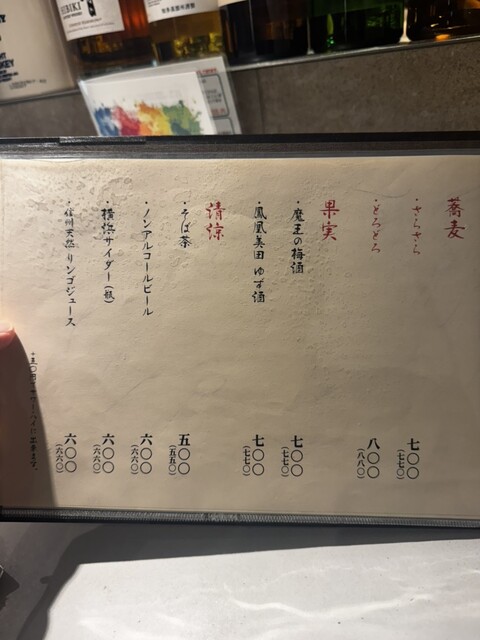 HIBIKI
蕎麦
・さらさら 七〇〇 (七七〇)
・どろどろ 八〇〇 (八八〇)
果実
・魔王の梅酒 七〇〇 (七七〇)
・鳳凰美田 ゆず酒 七〇〇 (七七〇)
清涼
・そば茶 五〇〇 (五五〇)
・ノンアルコールビール 六〇〇 (六六〇)
・横浜サイダー(瓶) 六〇〇 (六六〇)
・信州天然 リンゴジュース 六〇〇 (六六〇)